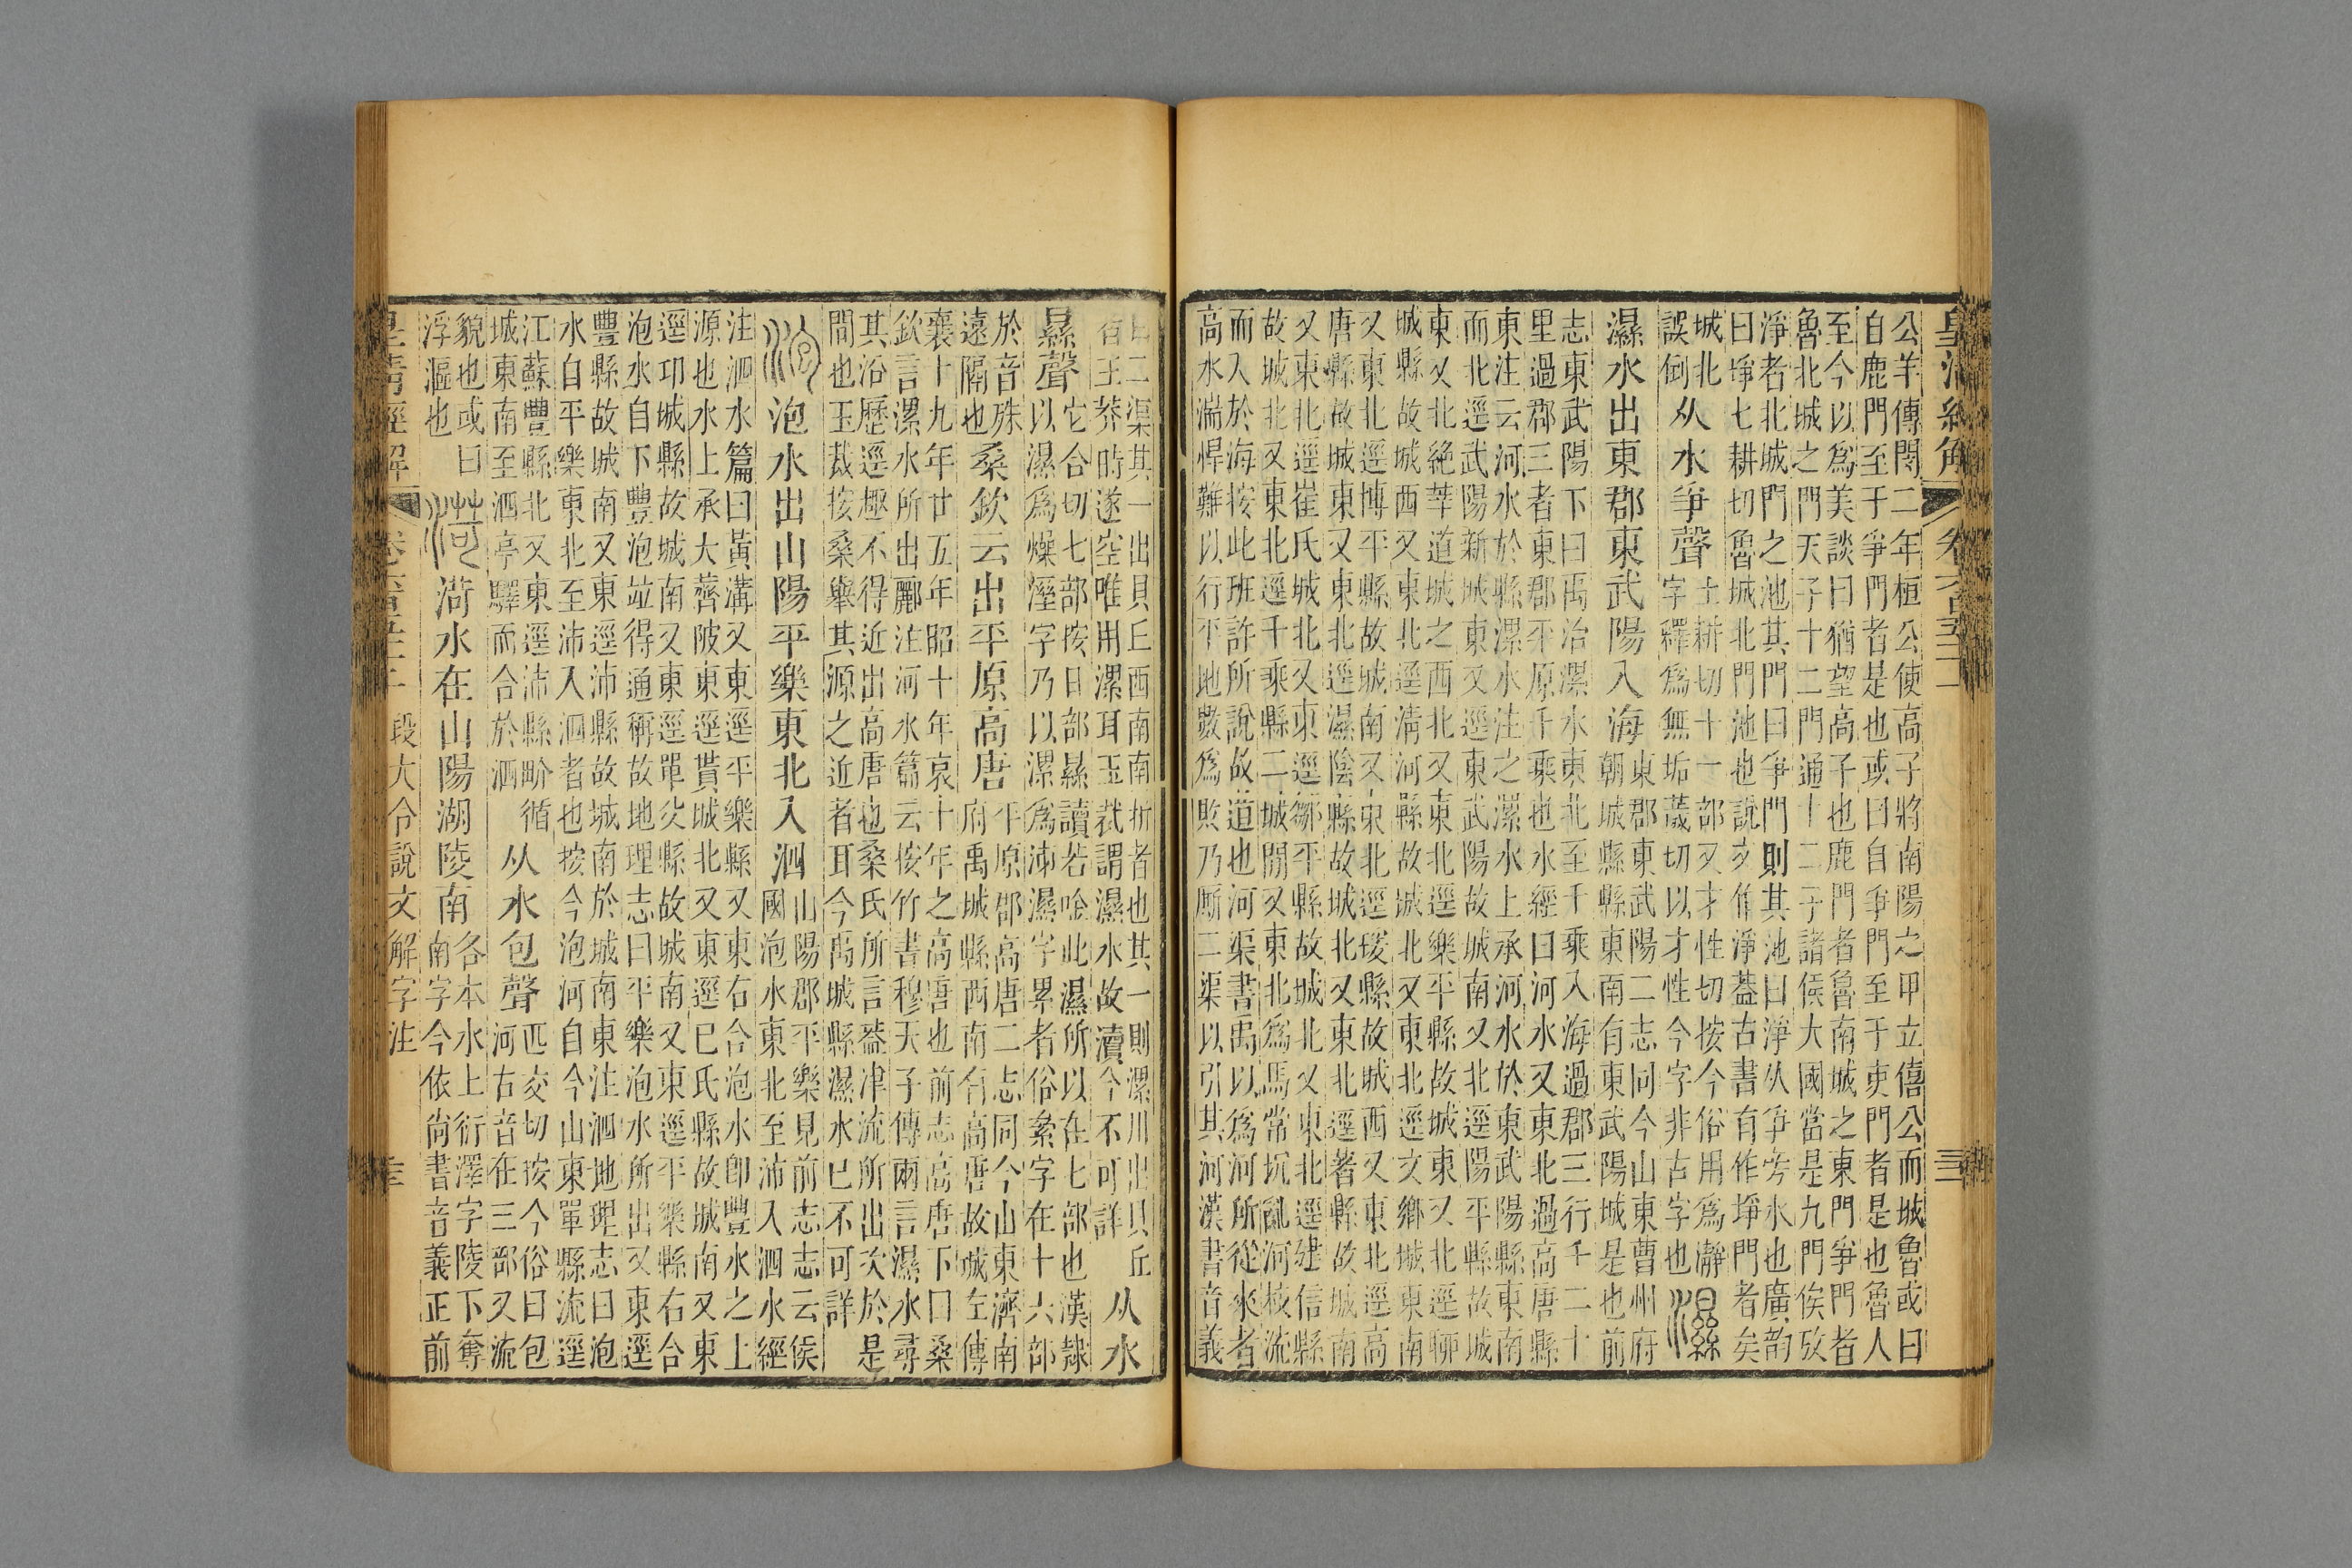 皇清經解 卷六百五十一 三
公羊傳閔二年桓公使高子將南陽之甲立僖公而城魯或曰
自鹿門至于爭門者是也或曰自爭門至于吏門者是也魯人
至今以爲美談曰猶望高子也鹿門者魯南城之東門爭門者
魯北城之門天子十二門通十二子諸侯大國當是九門侯攷
淨者北城門之池其門曰爭門則其池曰淨从爭旁水也廣韵
曰埩七耕切魯城北門池也說文作淨葢古書有作埩門者矣
城北
誤倒
从水爭聲
士耕切十一部又才性切按今俗用爲瀞
字釋爲無垢薉切以才性今字非古字也
濕
濕水出東郡東武陽入海
東郡東武陽二志同今山東曹州府
朝城縣縣東南有東武陽城是也前
志東武陽下曰禹治漯水東北至千乘入海過郡三行千二十
里過郡三者東郡平原千乘也水經曰河水又東北過高唐縣
東注云河水於縣漯水注之漯水上承河水於東武陽縣東南
而北逕武陽新城東又逕東武陽故城南又北逕陽平縣故城
東又北絶莘道城之西北又東北逕樂平縣故城東又北逕聊
城縣故城西又東北逕淸河縣故城北又東北逕文鄉城東南
又東北逕博平縣故城南又東北逕援縣故城西又東北逕高
唐縣故城東又東北逕漯陰縣故城北又東北逕著縣故城南
又東北逕崔氏城北又東逕鄒平縣故城北又東北逕建信縣
故城北又東北逕千乘縣二城閒又東北爲馬常坑亂河枝流
而入於海按此班許所說故道也河渠書禹以爲河所從來者
高水湍悍難以行平地數爲敗乃厮二渠以引其河漢書音義
曰二渠其一出貝丘西南南折者也其一則漯川出貝丘
有王莽時遂空唯用漯耳玉裁謂濕水故瀆今不可詳
从水
㬎聲
它合切七部按日部㬎讀若唫此濕所以在七部也漢隸
以濕爲燥溼字乃以漯爲沛濕字累者俗絫字在十六部
於音殊
遠隔也
桑欽云出平原高唐
平原郡高唐二志同今山東濟南
府禹城縣西南有高唐故城左傳
襄十九年廿五年昭十年哀十年之高唐也前志高唐下曰桑
欽言漯水所出酈注河水篇云按竹書穆天子傳兩言濕水尋
其沿歷逕趣不得近出高唐也桑氏所言葢津流所出次於是
閒也玉裁按桑舉其源之近者耳今禹城縣濕水已不可詳
泡
泡水出山陽平樂東北入泗
山陽郡平樂見前志志云侯
國泡水東北至沛入泗水經
注泗水篇曰黃溝又東逕平樂縣又東右合泡水卽豐水之上
源也水上承大薺陂東逕貰城北又東逕已氏縣故城南又東
逕卭城縣故城南又東逕單父縣故城南又東逕平樂縣右合
泡水自下豐泡竝得通稱故地理志曰平樂泡水所出又東逕
豐縣故城南又東逕沛縣故城南於城南東注泗地理志曰泡
水自平樂東北至沛入泗者也按今泡河自今山東單縣流逕
江蘇豐縣北又東逕沛縣畍循
城東南至泗亭驛而合於泗
从水包聲
匹交切按今俗曰包
河右音在三部又流
貌也或曰
浮漚也
菏
菏水在山陽湖陵南
各本水上衍澤字陵下奪
南字今依尙書音義正前
皇清經解 卷六百五十一 段大令說文解字注 三